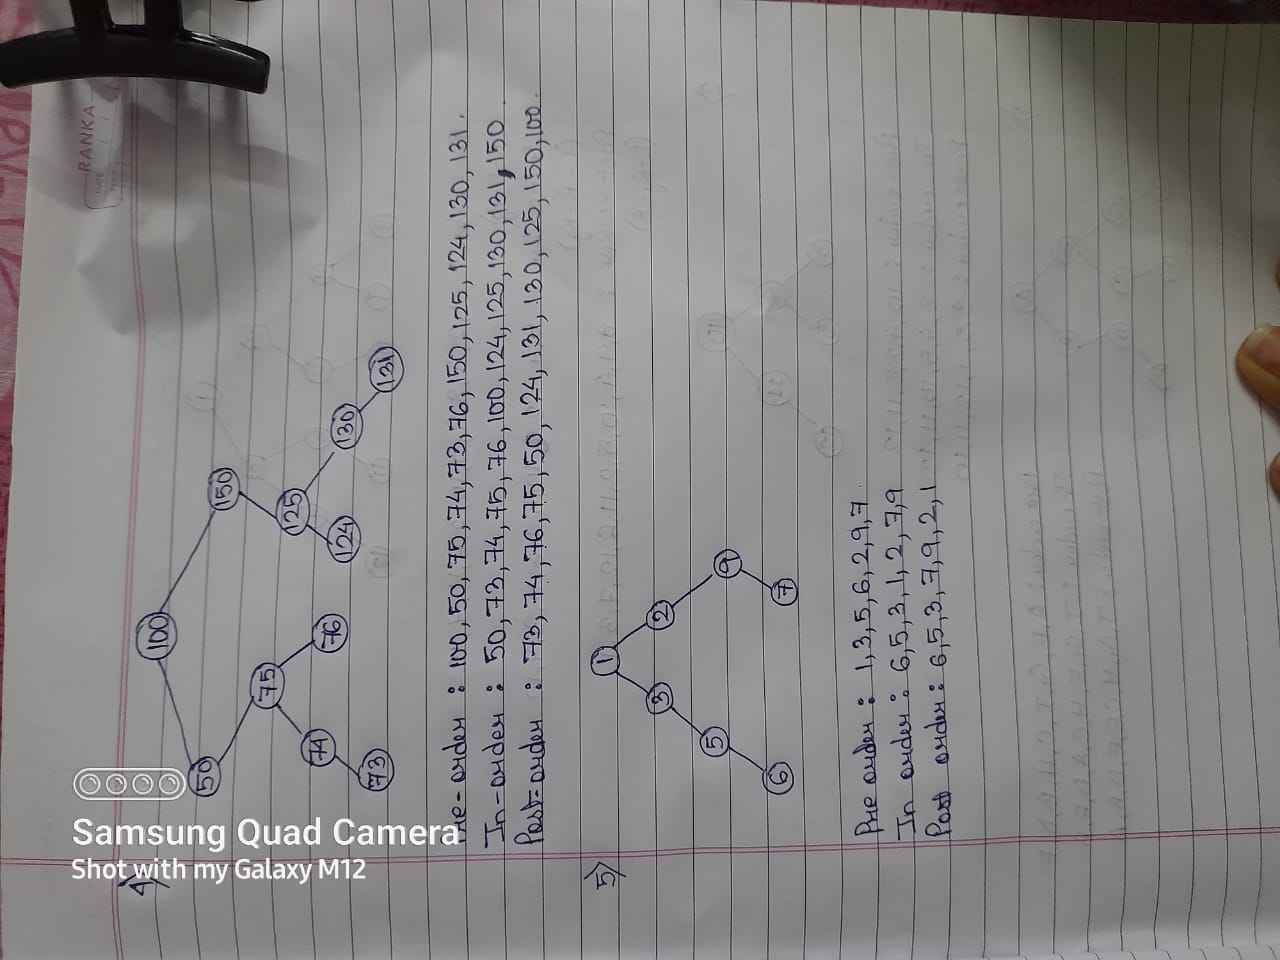 RANKA
DATE
4)
100
50 150
75 125
74 76 124 130
73 131
Pre-order : 100, 50, 75, 74, 73, 76, 150, 125, 124, 130, 131.
In-order : 50, 73, 74, 75, 76, 100, 124, 125, 130, 131, 150
Post-order : 73, 74, 76, 75, 50, 124, 131, 130, 125, 150, 100.
5)
1
3 2
5 9
6 7
Pre order : 1, 3, 5, 6, 2, 9, 7.
In order : 6, 5, 3, 1, 2, 7, 9
Post order : 6, 5, 3, 7, 9, 2, 1
Samsung Quad Camera
Shot with my Galaxy M12